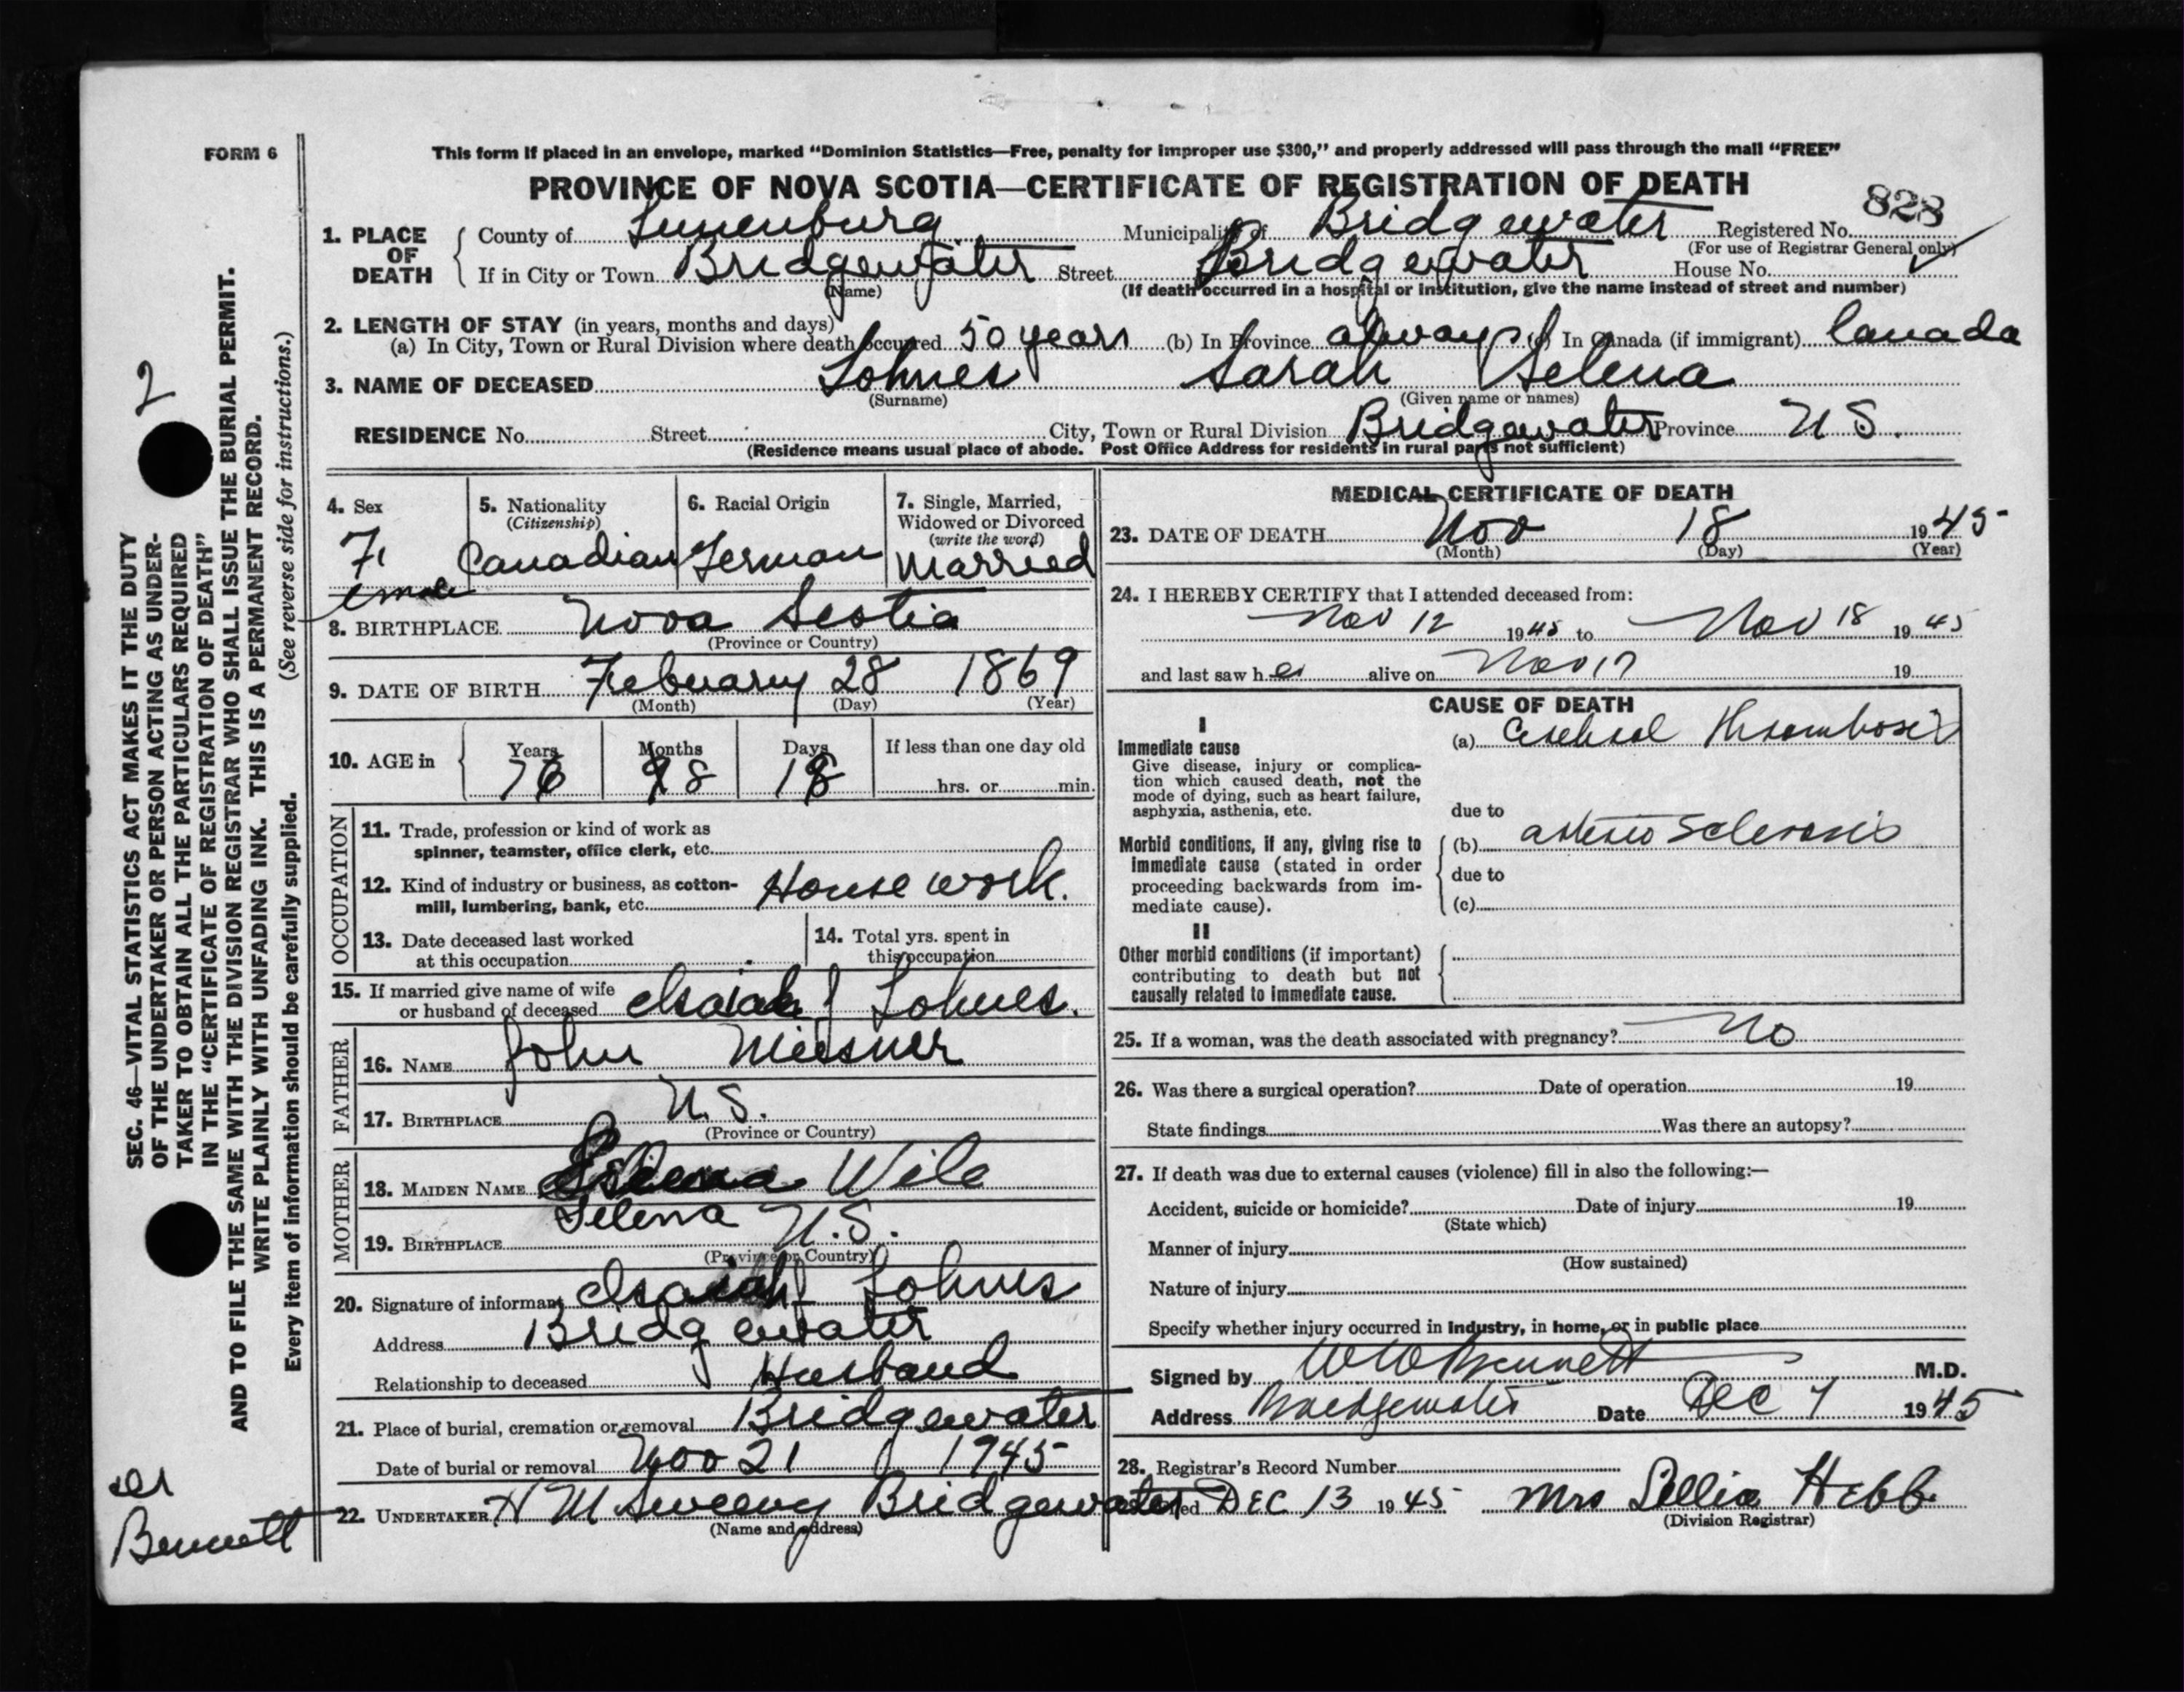 FORM 6
This form if placed in an envelope, marked "Dominion Statistics—Free, penalty for improper use $300," and properly addressed will pass through the mail "FREE"
PROVINCE OF NOVA SCOTIA—CERTIFICATE OF REGISTRATION OF DEATH
828
1. PLACE OF DEATH
County of Lunenburg Municipality of Bridgewater Registered No.
(For use of Registrar General only)
If in City or Town Bridgewater Street Bridgewater House No.
(Name) (If death occurred in a hospital or institution, give the name instead of street and number)
2. LENGTH OF STAY (in years, months and days)
(a) In City, Town or Rural Division where death occurred 50 years (b) In Province always (c) In Canada (if immigrant) Canada
3. NAME OF DECEASED Lohnes Sarah Selena
(Surname) (Given name or names)
RESIDENCE No. Street City, Town or Rural Division Bridgewater Province N S.
(Residence means usual place of abode. Post Office Address for residents in rural parts not sufficient)
4. Sex
Female
5. Nationality
(Citizenship)
Canadian
6. Racial Origin
German
7. Single, Married,
Widowed or Divorced
(write the word)
Married
8. BIRTHPLACE Nova Scotia
(Province or Country)
9. DATE OF BIRTH Febuary 28 1869
(Month) (Day) (Year)
10. AGE in
Years Months Days If less than one day old
76 8 18 hrs. or min.
OCCUPATION
11. Trade, profession or kind of work as
spinner, teamster, office clerk, etc.
12. Kind of industry or business, as cotton-
mill, lumbering, bank, etc. House work.
13. Date deceased last worked
at this occupation
14. Total yrs. spent in
this occupation
15. If married give name of wife
or husband of deceased Isaiah Lohnes.
FATHER
16. NAME John Meisner
17. BIRTHPLACE N.S.
(Province or Country)
MOTHER
18. MAIDEN NAME Wile
Selena
19. BIRTHPLACE N.S.
(Province or Country)
20. Signature of informant Isaiah Lohnes
Address Bridgewater
Relationship to deceased Husband
21. Place of burial, cremation or removal Bridgewater
Date of burial or removal Nov 21 1945
22. UNDERTAKER H M Sweeny Bridgewater
(Name and address)
MEDICAL CERTIFICATE OF DEATH
23. DATE OF DEATH Nov 18 1945
(Month) (Day) (Year)
24. I HEREBY CERTIFY that I attended deceased from:
Nov 12 1945 to Nov 18 1945
and last saw her alive on Nov 17 19
CAUSE OF DEATH
I
Immediate cause (a) Cerebral Thrombosis
Give disease, injury or complica-
tion which caused death, not the
mode of dying, such as heart failure,
asphyxia, asthenia, etc.
due to
Morbid conditions, if any, giving rise to
immediate cause (stated in order
proceeding backwards from im-
mediate cause).
(b) arterio Sclerosis
due to
(c)
II
Other morbid conditions (if important)
contributing to death but not
causally related to immediate cause.
25. If a woman, was the death associated with pregnancy? No
26. Was there a surgical operation? Date of operation 19
State findings Was there an autopsy?
27. If death was due to external causes (violence) fill in also the following:—
Accident, suicide or homicide? Date of injury 19
(State which)
Manner of injury
(How sustained)
Nature of injury
Specify whether injury occurred in industry, in home, or in public place
Signed by W W Bennett M.D.
Address Bridgewater Date Dec 7 1945
28. Registrar's Record Number
DEC 13 1945 Mrs Lellia Hebb
(Division Registrar)
SEC. 46—VITAL STATISTICS ACT MAKES IT THE DUTY
OF THE UNDERTAKER OR PERSON ACTING AS UNDER-
TAKER TO OBTAIN ALL THE PARTICULARS REQUIRED
IN THE "CERTIFICATE OF REGISTRATION OF DEATH"
AND TO FILE THE SAME WITH THE DIVISION REGISTRAR WHO SHALL ISSUE THE BURIAL PERMIT.
WRITE PLAINLY WITH UNFADING INK. THIS IS A PERMANENT RECORD.
(See reverse side for instructions.)
Every item of information should be carefully supplied.
2
Bennett